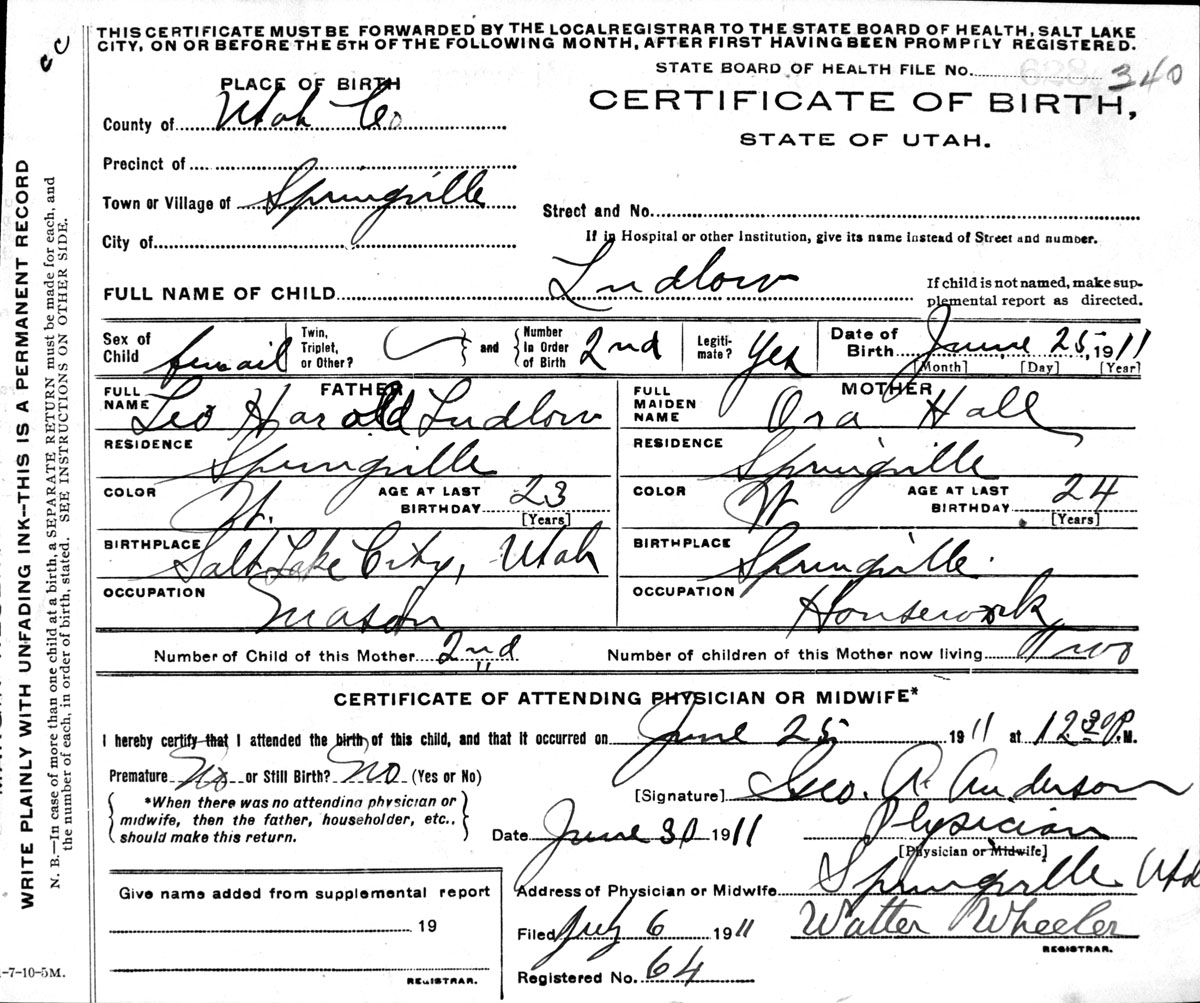 THIS CERTIFICATE MUST BE FORWARDED BY THE LOCAL REGISTRAR TO THE STATE BOARD OF HEALTH, SALT LAKE
CITY, ON OR BEFORE THE 5TH OF THE FOLLOWING MONTH, AFTER FIRST HAVING BEEN PROMPTLY REGISTERED.
STATE BOARD OF HEALTH FILE No. 340
PLACE OF BIRTH
CERTIFICATE OF BIRTH,
STATE OF UTAH.
County of Utah Co
Precinct of
Town or Village of Springville
Street and No.
City of
If in Hospital or other Institution, give its name instead of Street and number.
FULL NAME OF CHILD Ludlow
If child is not named, make sup-
plemental report as directed.
Sex of Child femail
Twin, Triplet, or Other?
and
Number In Order of Birth 2nd
Legiti-mate? Yes
Date of Birth June 25, 1911
[Month] [Day] [Year]
FATHER
FULL NAME Leo Harold Ludlow
RESIDENCE Springville
COLOR W. AGE AT LAST BIRTHDAY 23
[Years]
BIRTHPLACE Salt Lake City, Utah
OCCUPATION Mason
MOTHER
FULL MAIDEN NAME Ora Hall
RESIDENCE Springville
COLOR W AGE AT LAST BIRTHDAY 24
[Years]
BIRTHPLACE Springville.
OCCUPATION Housework
Number of Child of this Mother 2nd
Number of children of this Mother now living Two
CERTIFICATE OF ATTENDING PHYSICIAN OR MIDWIFE*
I hereby certify that I attended the birth of this child, and that it occurred on June 25, 1911 at 12 30 P. M.
Premature No or Still Birth? No (Yes or No)
*When there was no attending physician or
midwife, then the father, householder, etc.,
should make this return.
[Signature] Geo. A. Anderson
Date June 30 1911
Physician
[Physician or Midwife]
Address of Physician or Midwife Springville Utah
Give name added from supplemental report
19
REGISTRAR.
Filed July 6 1911
Walter Wheeler
REGISTRAR.
Registered No. 64
WRITE PLAINLY WITH UNFADING INK--THIS IS A PERMANENT RECORD
N. B.—In case of more than one child at a birth, a SEPARATE RETURN must be made for each, and
the number of each, in order of birth, stated. SEE INSTRUCTIONS ON OTHER SIDE.
-7-10-5M.